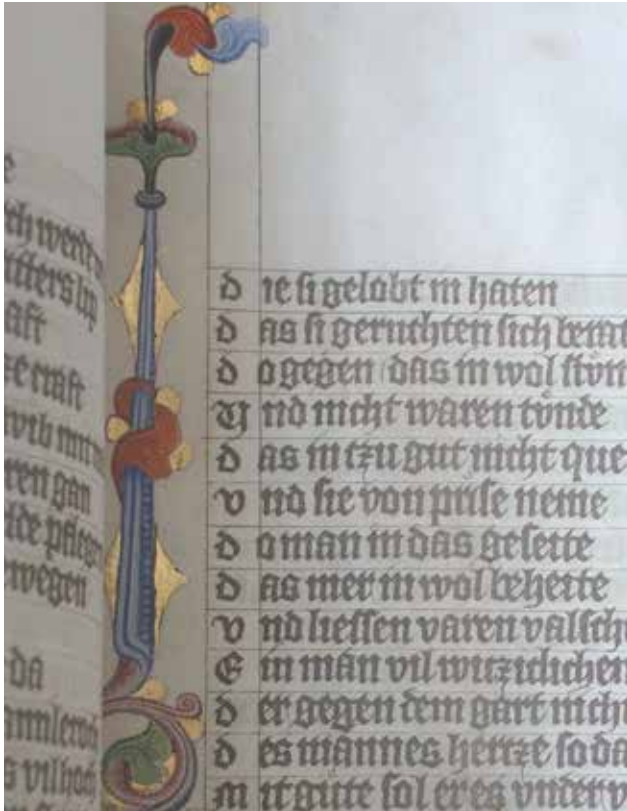 werde
itters lip
aft
ze craft
wib mit
ren gan
lde pfleg
ewegen
da
s vil hoch
d ie si gelobt in haten
d as si geruchten sich berat
d o gegen das in wol stůn
V nd nicht waren tůnde
d as in tzu gut nicht que
v nd sie von prise neme
d o man in das geseite
d as mer in wol beheite
v nd liessen varen valsch
E in man vil witziclichen
d er gegen dem gart nich
d es mannes hertze so da
m it gute sol er es vnder v